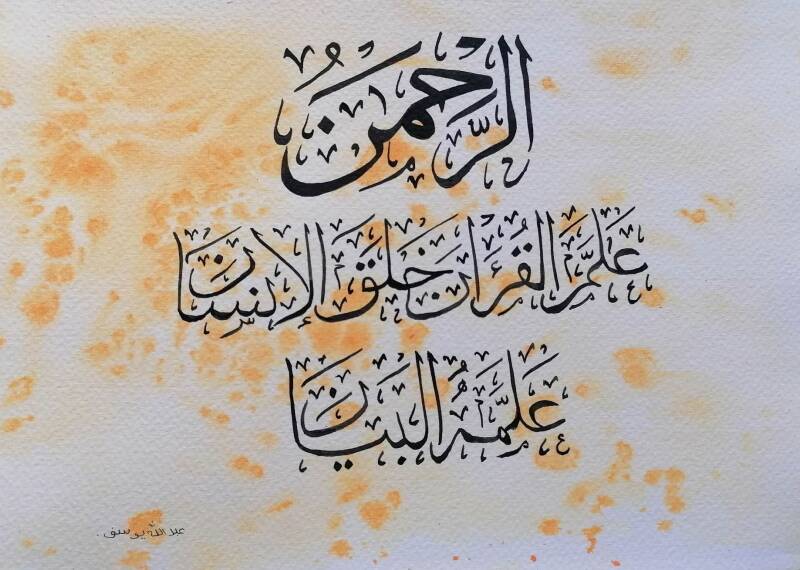 الرَّحْمَنُ
عَلَّمَ القُرْآنَ خَلَقَ الإنسَانَ
عَلَّمَهُ البَيَانَ
عبد الله يوسف.